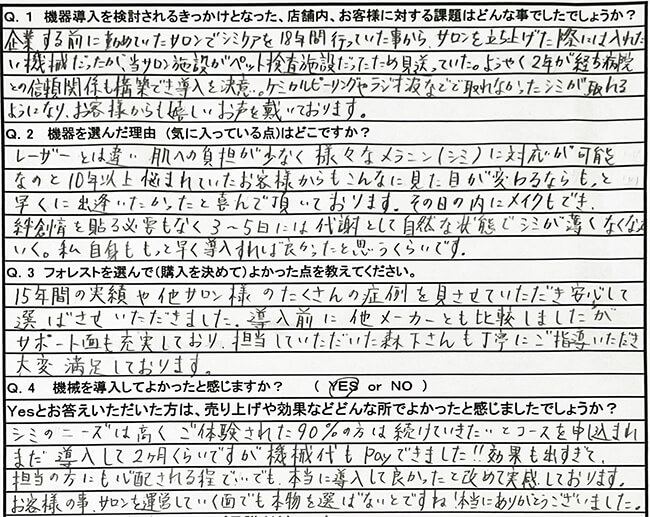 Q. 1 機器導入を検討されるきっかけとなった、店舗内、お客様に対する課題はどんな事でしたでしょうか?
企業する前に勤めていたサロンでシミケアを18年間行っていた事から、サロンを立ち上げた際には入れた
い機械だったが、当サロン施設がペット検査施設だったため見送っていた。ようやく2年が経ち病院
との信頼関係も構築でき導入を決意。ケミカルピーリングやラジオ波などで取れなかったシミが取れる
ようになり、お客様からも嬉しいお声を戴いております。
Q. 2 機器を選んだ理由 (気に入っている点)はどこですか?
レーザーとは違い 肌への負担が少なく 様々なメラニン(シミ)に対応が可能
なのと10年以上悩まれていたお客様からもこんなに見た目が変わるならもっと
早くに出逢いたかったと喜んで頂いております。その日の内にメイクもでき、
絆創膏を貼る必要もなく3~5日には代謝として自然な状態でシミが薄くなって
いく。私自身ももっと早く導入すれば良かったと思うくらいです。
Q. 3 フォレストを選んで(購入を決めて)よかった点を教えてください。
15年間の実績や他サロン様のたくさんの症例を見させていただき安心して
選ばせいただきました。導入前に他メーカーとも比較しましたが
サポート面も充実しており、担当していただいた森下さんも丁寧にご指導いただき
大変満足しております。
Q. 4 機械を導入してよかったと感じますか? ( YES or NO )
Yesとお答えいただいた方は、売り上げや効果などどんな所でよかったと感じましたでしょうか?
シミのニーズは高くご体験された90%の方は続けていきたいとコースを申込まれ
まだ導入して2ヶ月くらいですが機械代もPayできました!!効果も出すぎて、
担当の方にも心配される程でいでも、本当に導入して良かったと改めて実感しております。
お客様の事、サロンを運営していく面でも本物を選ばないとですね!本当にありがとうございました。